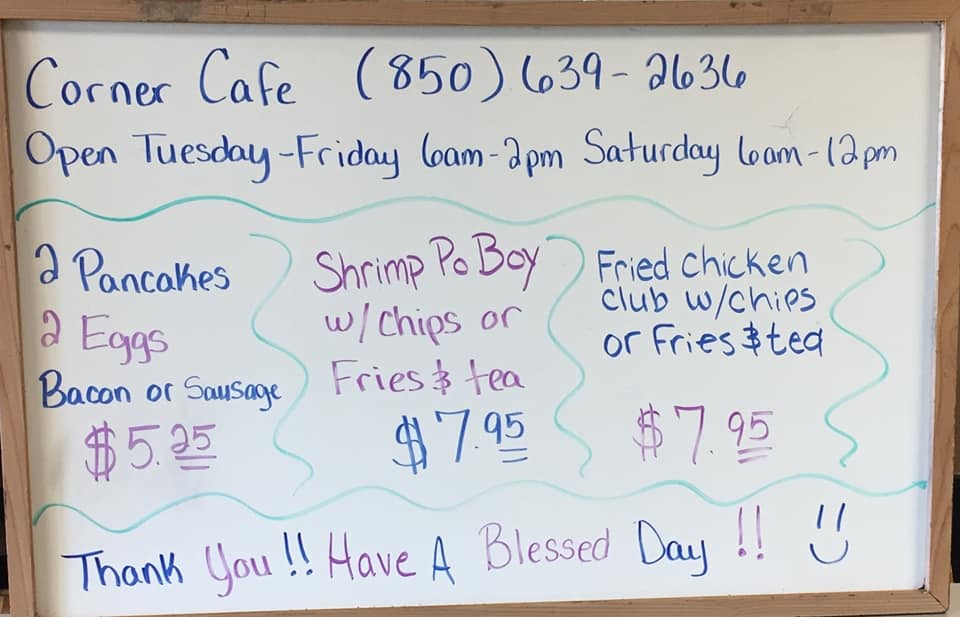 Corner Cafe (850) 639-2636
Open Tuesday-Friday 6am-2pm Saturday 6am-12pm
2 Pancakes
2 Eggs
Bacon or Sausage
$5.25
Shrimp Po Boy
w/chips or
Fries & tea
$7.95
Fried chicken
club w/chips
or Fries & tea
$7.95
Thank You!! Have A Blessed Day!!